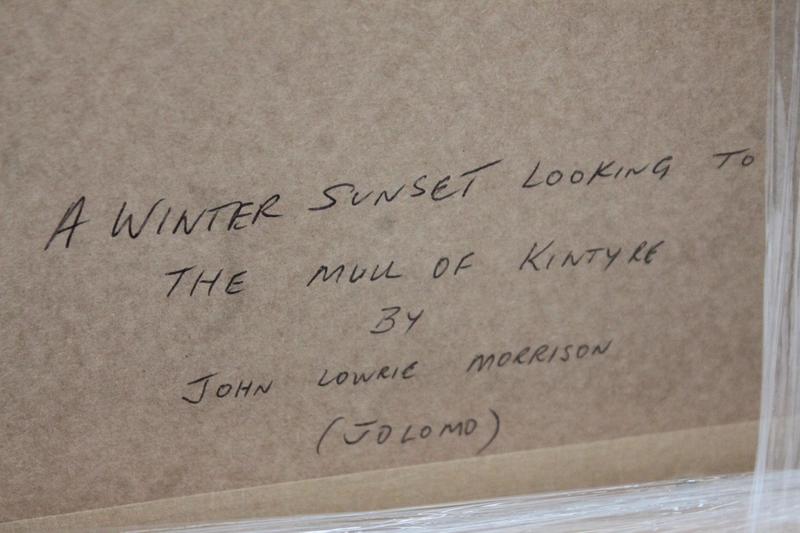 A WINTER SUNSET LOOKING TO
THE MULL OF KINTYRE
BY
JOHN LOWRIE MORRISON
(JOLOMO)